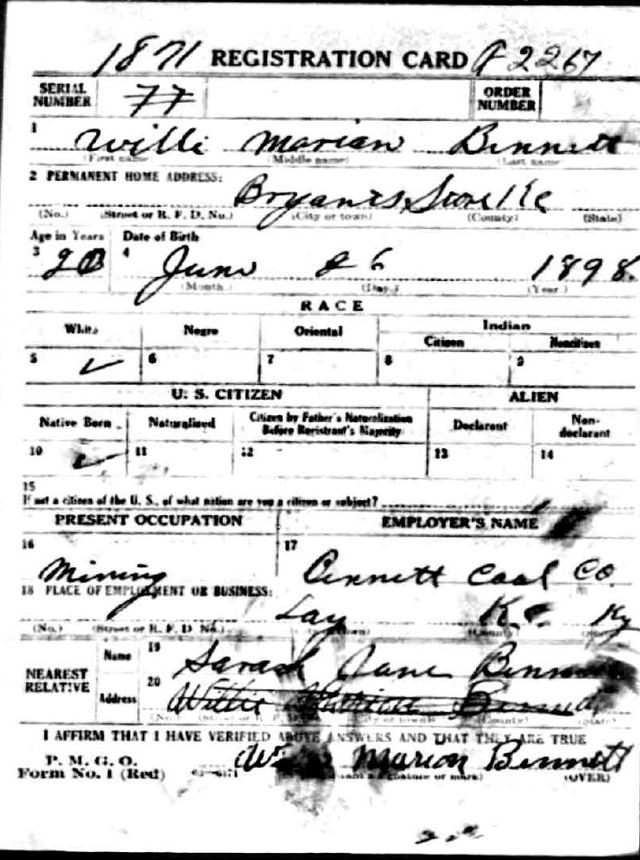 1871 REGISTRATION CARD A 2267
SERIAL NUMBER 77 ORDER NUMBER
1 Willi Marian Bennett
(First name) (Middle name) (Last name)
2 PERMANENT HOME ADDRESS:
Bryants Store Ke
(No.) (Street or R. F. D. No.) (City or town) (County) (State)
Age in Years Date of Birth
3 20 4 June 26 1898
(Month.) (Day.) (Year.)
RACE
White Negro Oriental Indian
Citizen Noncitizen
5 ✓ 6 7 8 9
U. S. CITIZEN ALIEN
Native Born Naturalized Citizen by Father's Naturalization Before Registrant's Majority Declarant Non-declarant
10 ✓ 11 12 13 14
15
If not a citizen of the U. S., of what nation are you a citizen or subject?
PRESENT OCCUPATION EMPLOYER'S NAME
16 17
Mining Coal Co.
18 PLACE OF EMPLOYMENT OR BUSINESS:
Lay Ky
(No.) (Street or R. F. D. No.)
NEAREST RELATIVE Name 19 Sarah Jane Bennett
Address 20 Willie Marion Bennett
I AFFIRM THAT I HAVE VERIFIED ABOVE ANSWERS AND THAT THEY ARE TRUE
P. M. G. O.
Form No. 1 (Red) Marion Bennett
(Registrant's signature or mark) (OVER)